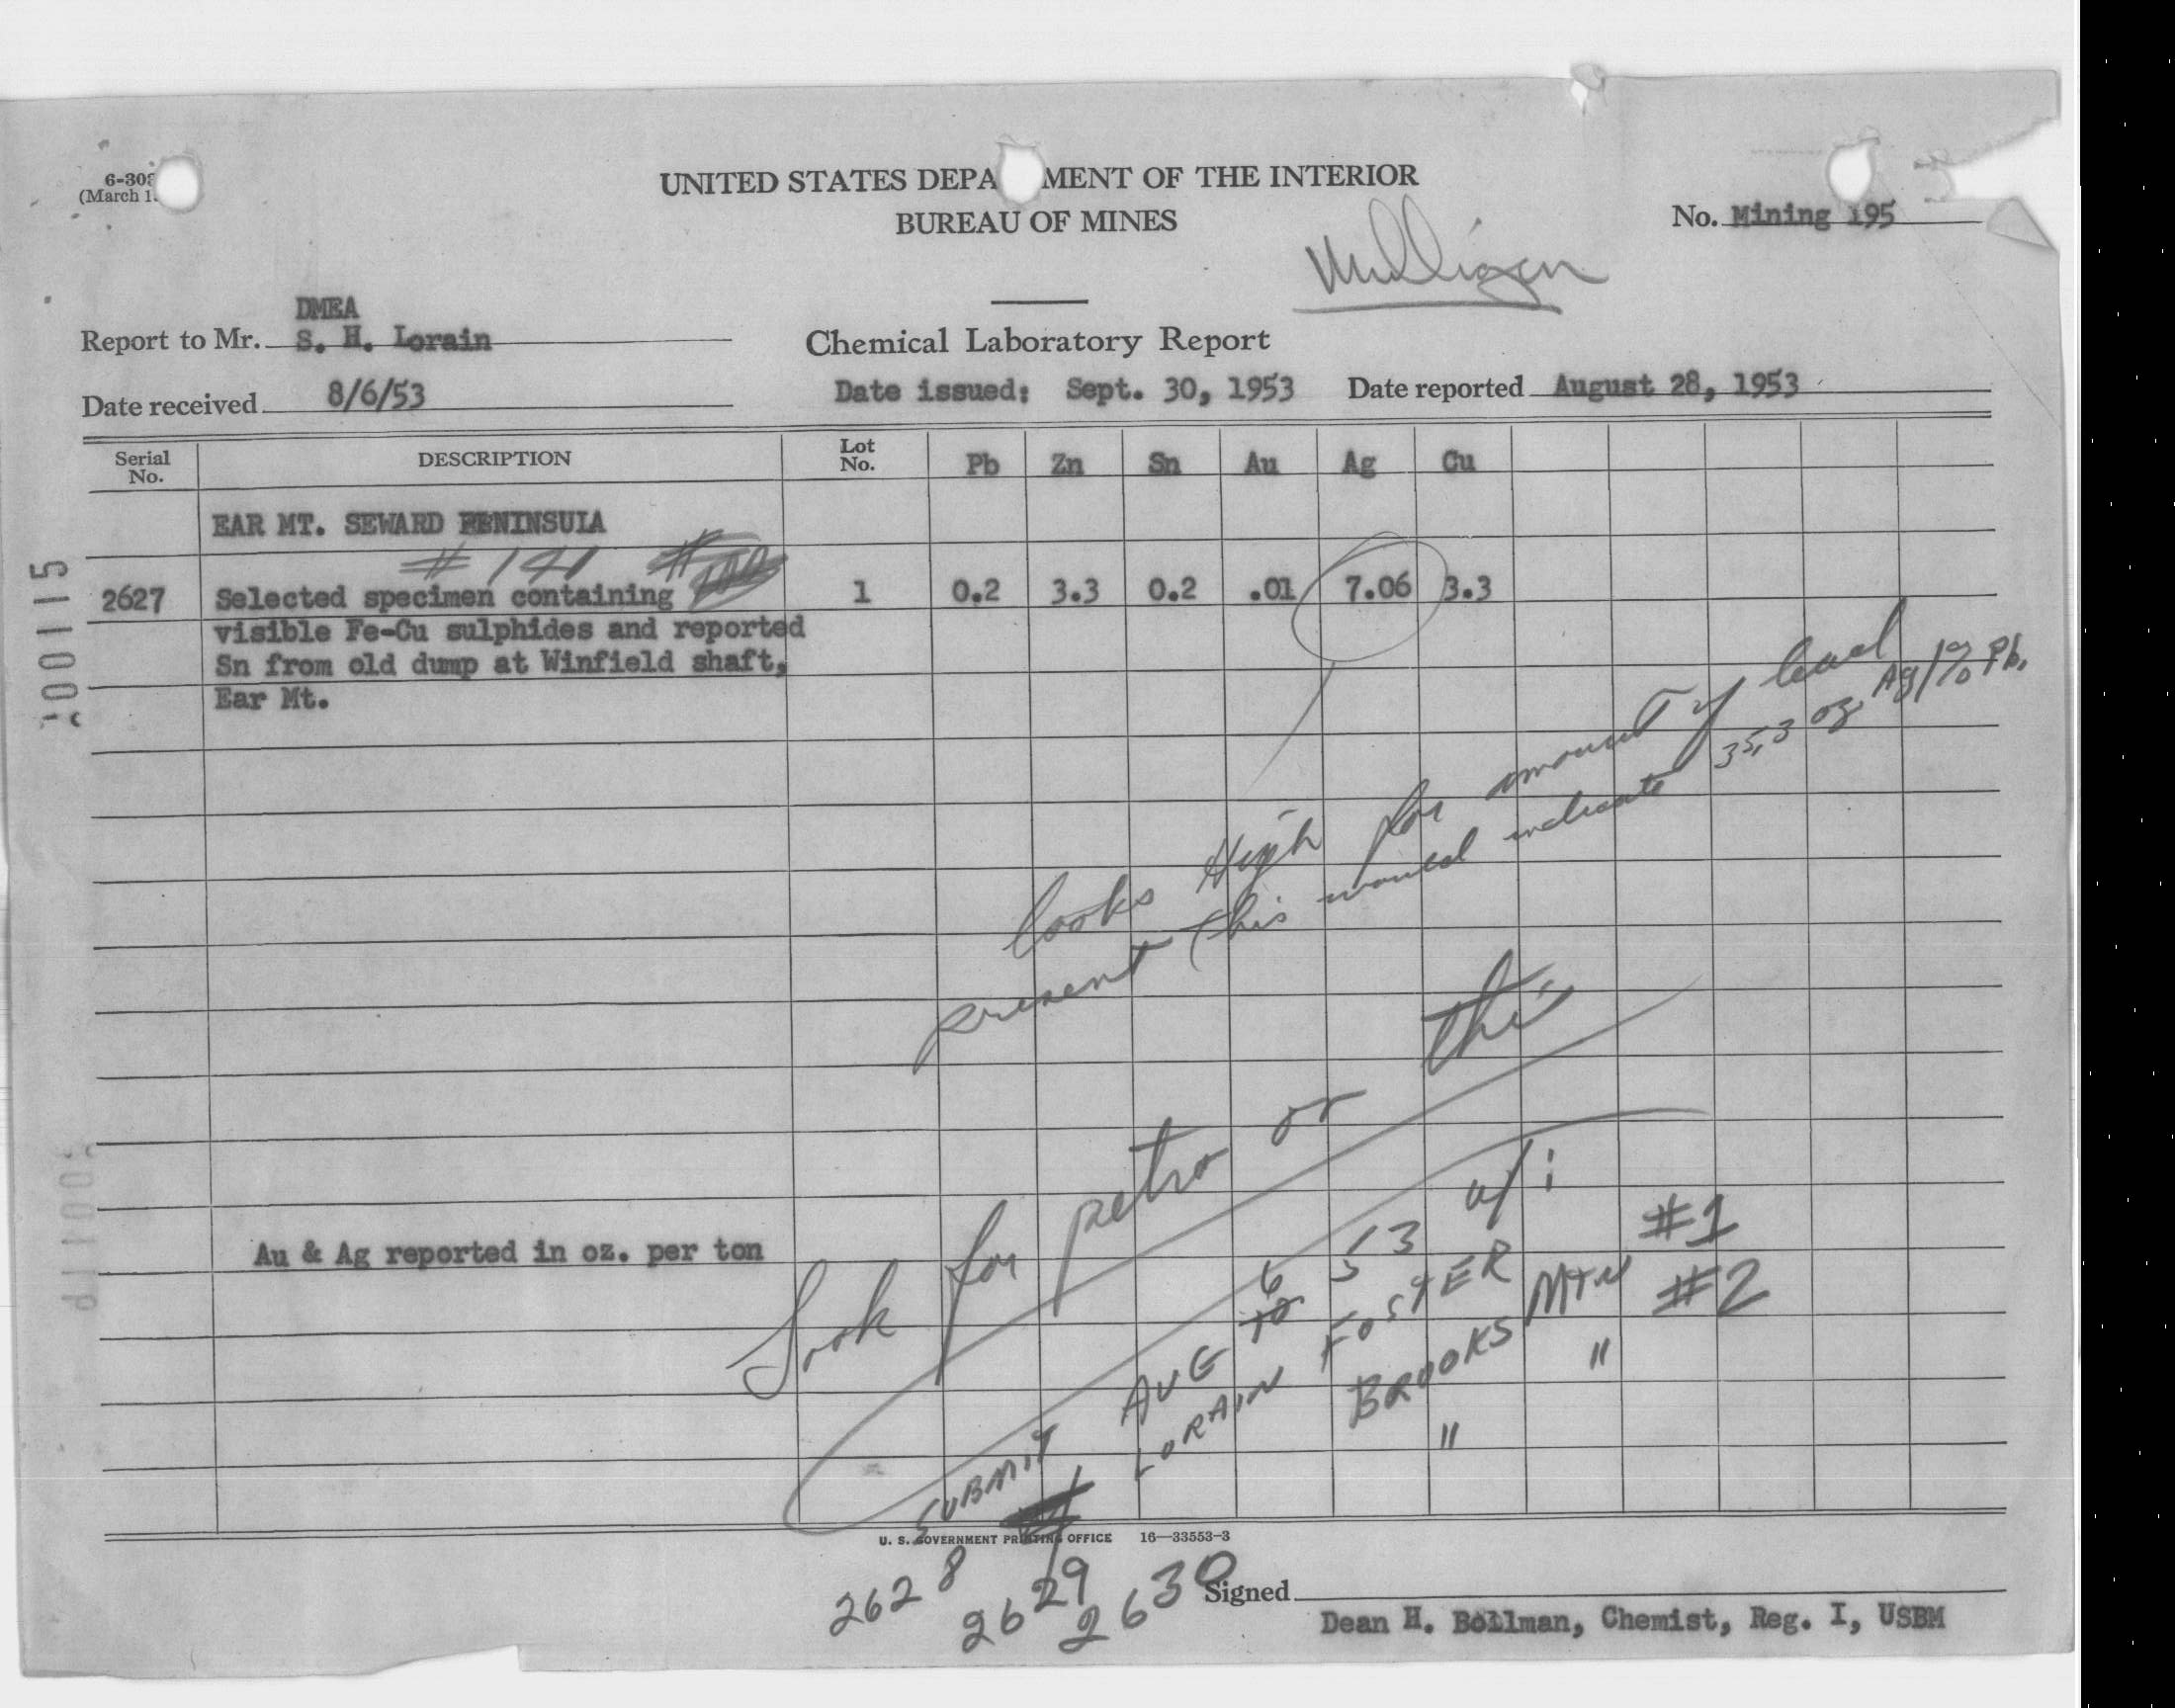 6-308
(March 1
UNITED STATES DEPA MENT OF THE INTERIOR
BUREAU OF MINES
No. Mining 195
Milligan
DMEA
Report to Mr. S. H. Lorain
Chemical Laboratory Report
Date received 8/6/53
Date issued: Sept. 30, 1953 Date reported August 28, 1953
Serial No. DESCRIPTION Lot No. Pb Zn Sn Au Ag Cu
EAR MT. SEWARD PENINSULA
# 141 #
2627 Selected specimen containing 1 0.2 3.3 0.2 .01 7.06 3.3
visible Fe-Cu sulphides and reported
Sn from old dump at Winfield shaft,
Ear Mt.
looks High for amount of lead
present this would indicate 35.3 oz Ag/1% Pb.
Look for petro or this
Au & Ag reported in oz. per ton
SUBMIT AUG 6 53
LORAIN FOSTER
BROOKS MTN #1
" " #2
U. S. GOVERNMENT PRINTING OFFICE 16—33553-3
2628
2629
2630
Signed
Dean H. Bollman, Chemist, Reg. I, USBM